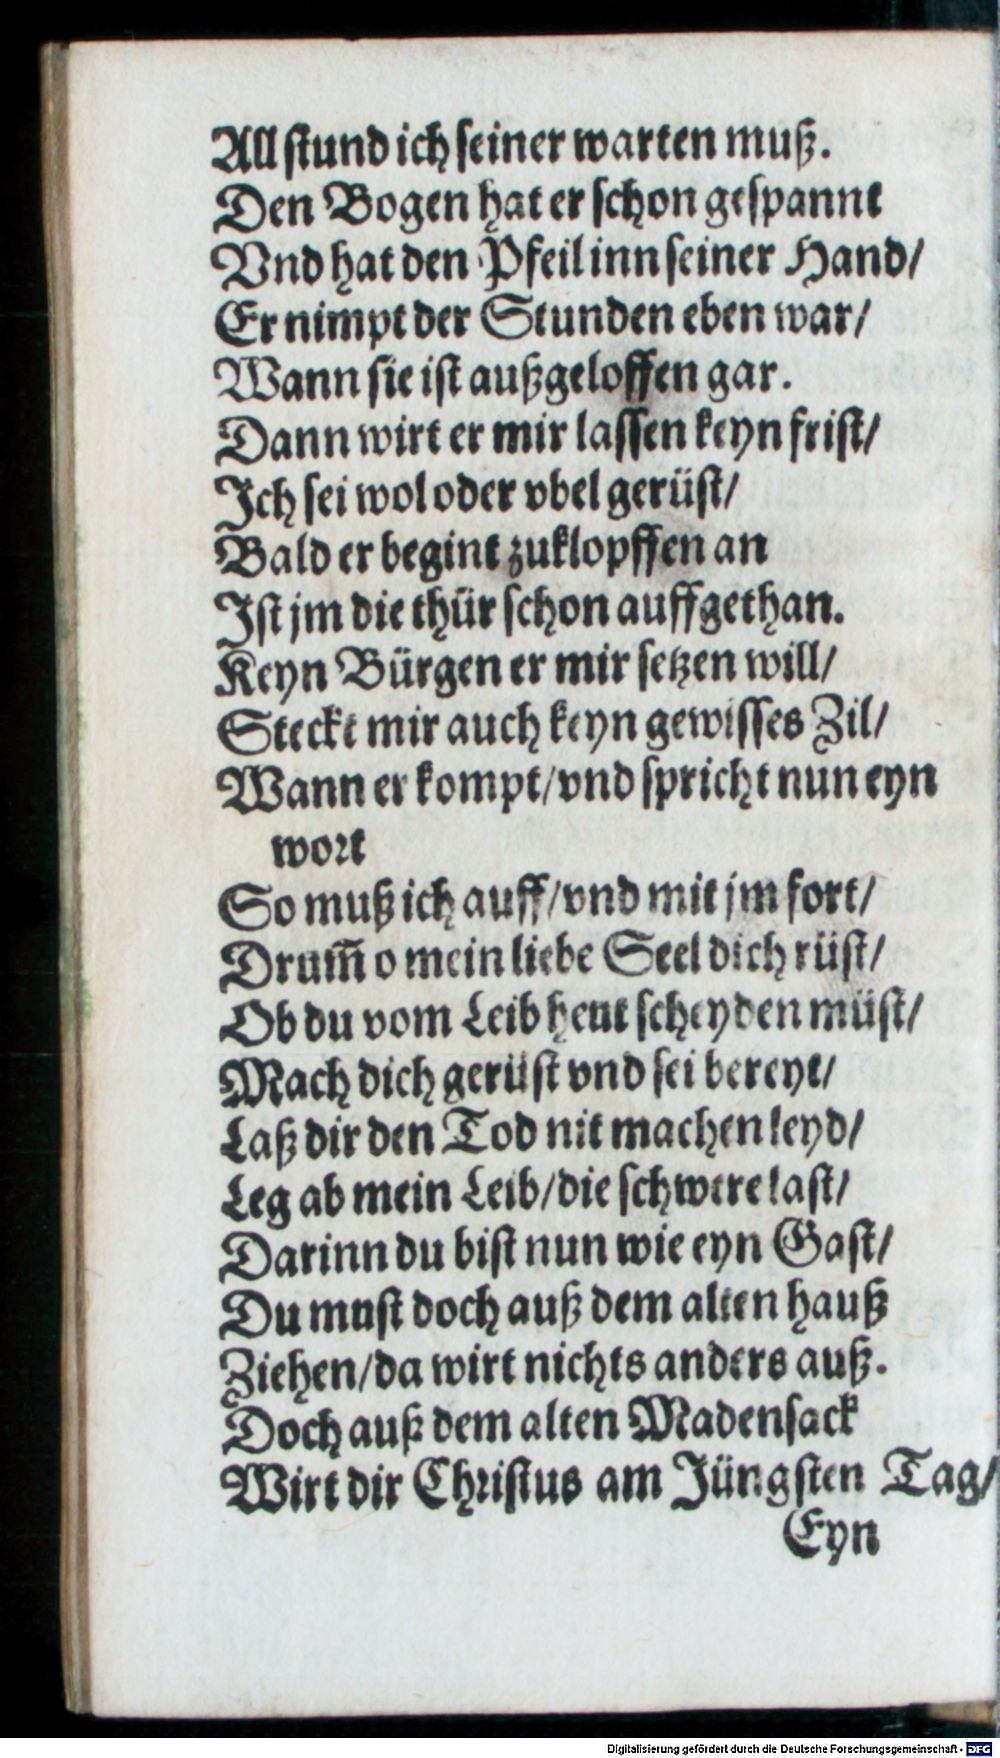 All stund ich seiner warten muß.
Den Bogen hat er schon gespannt
Vnd hat den Pfeil inn seiner Hand/
Er nimpt der Stunden eben war/
Wann sie ist außgeloffen gar.
Dann wirt er mir lassen keyn frist/
Ich sei wol oder vbel gerüst/
Bald er begint zuklopffen an
Ist jm die thür schon auffgethan.
Keyn Bürgen er mir setzen will/
Steckt mir auch keyn gewisses Zil/
Wann er kompt/vnd spricht nun eyn
wort
So muß ich auff/vnd mit jm fort/
Drum̃ o mein liebe Seel dich rüst/
Ob du vom Leib heut scheyden müst/
Mach dich gerüst vnd sei bereyt/
Laß dir den Tod nit machen leyd/
Leg ab mein Leib/die schwere last/
Darinn du bist nun wie eyn Gast/
Du must doch auß dem alten hauß
Ziehen/da wirt nichts anders auß.
Doch auß dem alten Madensack
Wirt dir Christus am Jüngsten Tag/
Eyn
Digitalisierung gefördert durch die Deutsche Forschungsgemeinschaft - DFG